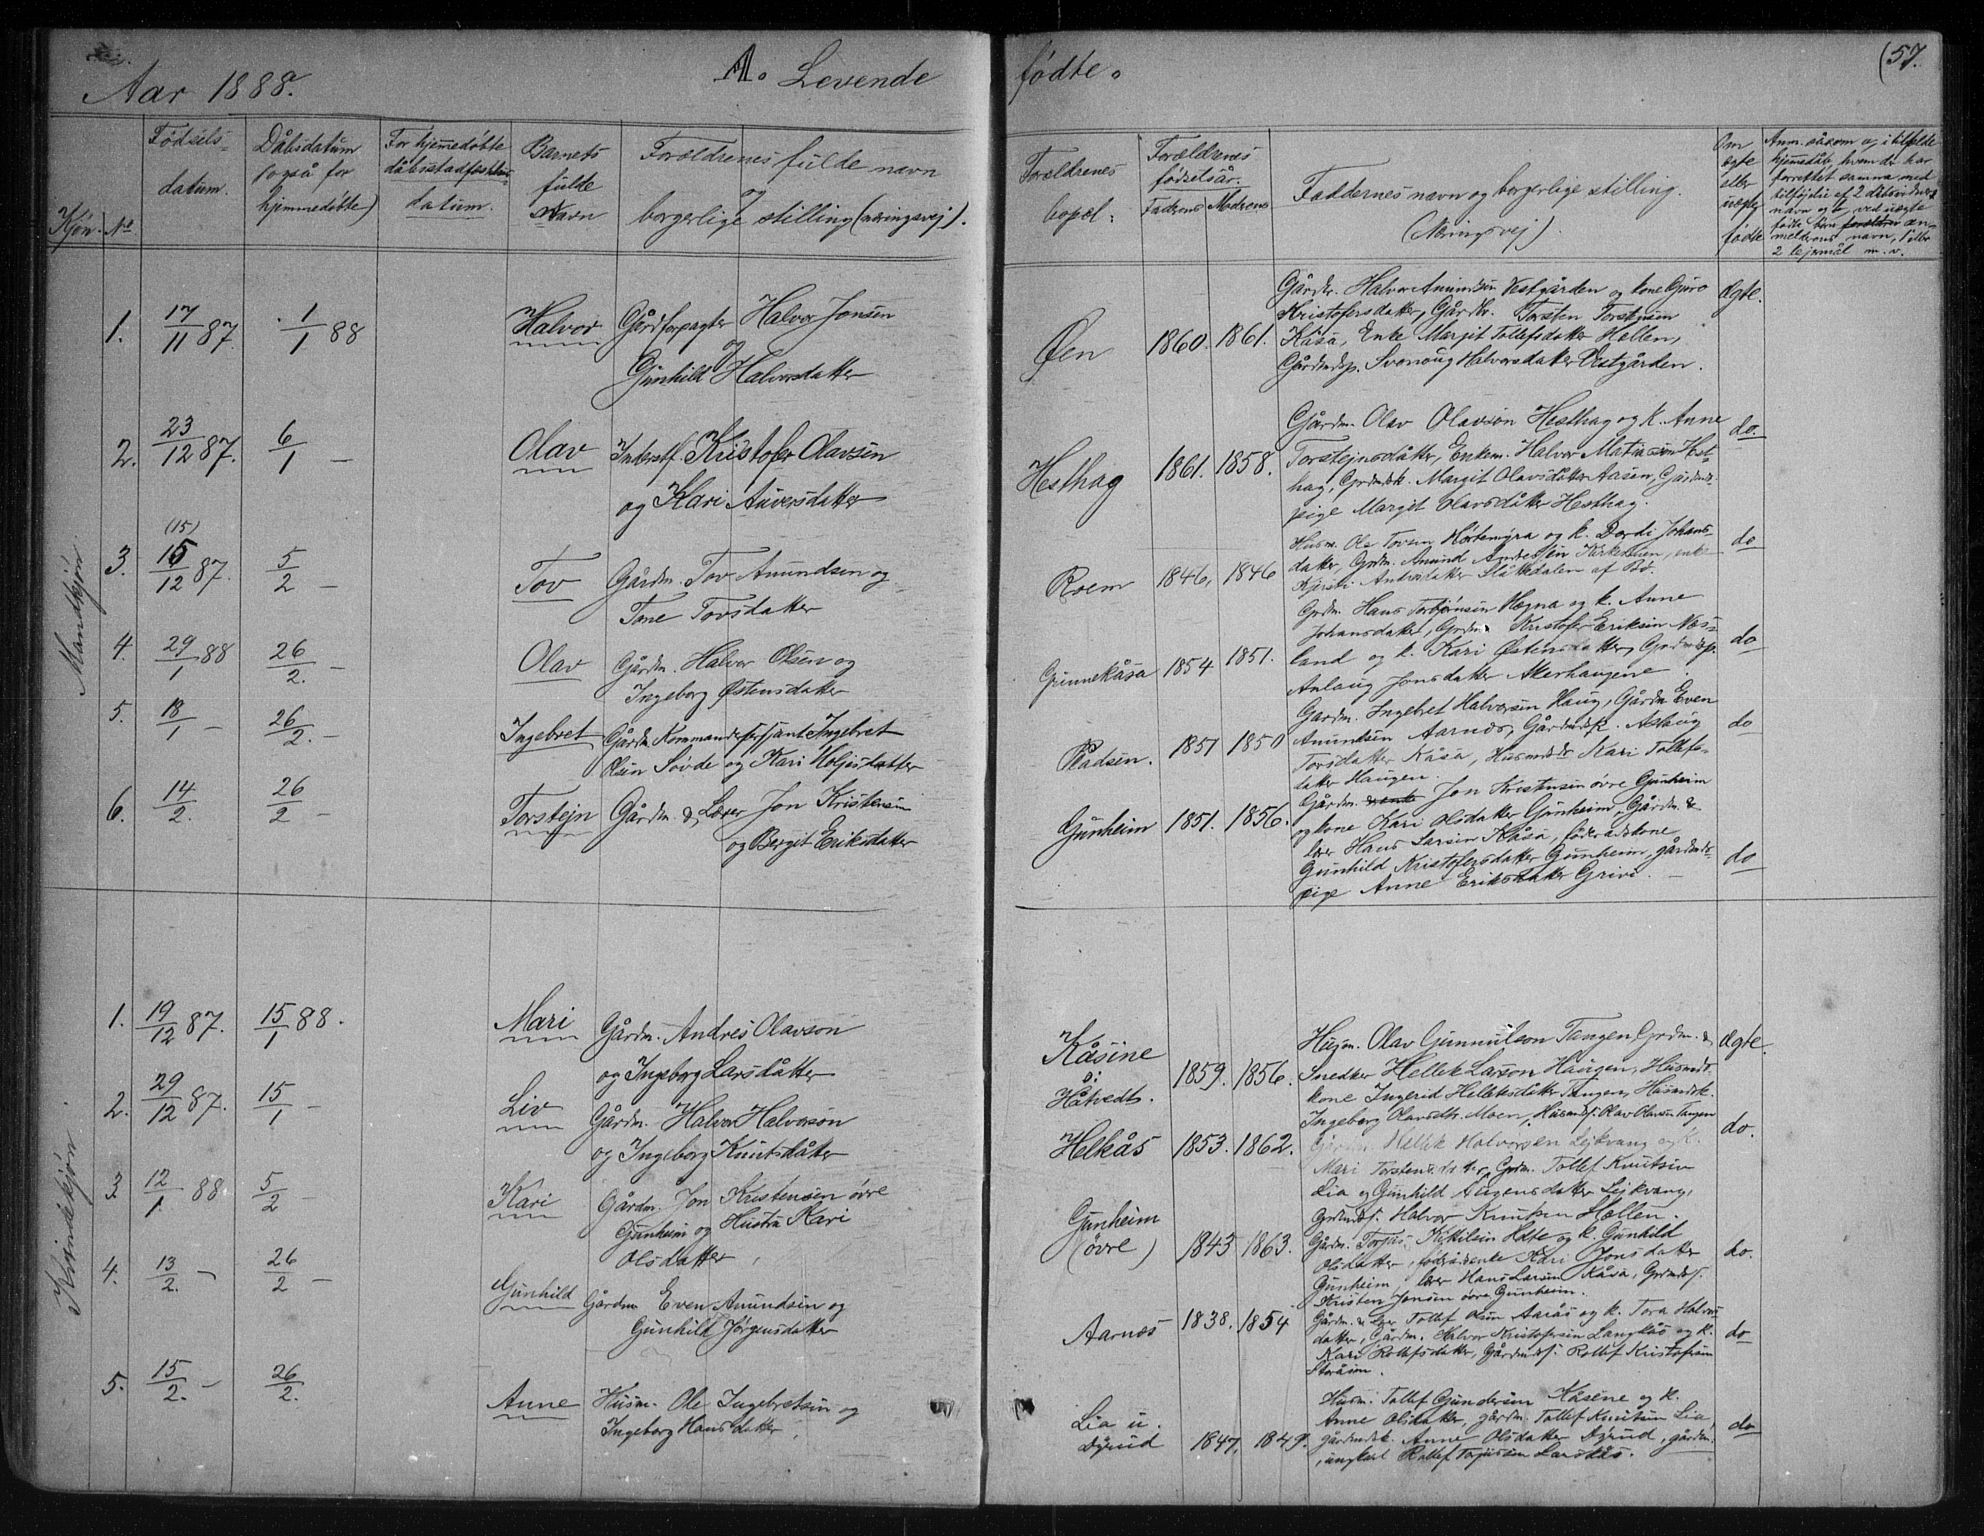 Aar 1888.
1. Levende fødte.
(57.
Kjøn.
No
Fødsels-
datum.
Dåbsdatum
(også for
hjemmedøbte)
For hjemmedøbte
datum.
Barnets
fulde
navn
Forældrenes fulde navn
og
borgerlige stilling (næringsvej).
Forældrenes
bopæl.
Forældrenes
fødselsår.
Faderens Moderens
Faddernes navn og borgerlige stilling.
(Næringsvej).
Om
ægte
eller
uægte
født
Anm. såsom a, i tilfælde
hjemmedåb, hvem der har
forrettet samme med
tilføjelse af 2 dåbsvidners
navn og b, ved uægte
fødte børn an-
melderens navn,
2 lejermål m. v.
Mandkjøn.
1.
17/11 87.
1/1 88
Halvor
Gårdforpagter Halvor Jonsen
Gunhild Halvorsdatter
Øen
1860. 1861.
Gårdbr. Halvor Amundsen Vestgården og kone Guro
Kristofersdatter, Gårdbr. Torsten Torstensen
Kåsa, Enke Margit Tollefsdatter Hellen,
Gårdmdsp. Svanoug Halvorsdatter Vestgården.
ægte.
2.
23/12 87.
6/1 —
Olav
Inderst. Kristofer Olavsen
og Kari Anversdatter
Hesthag
1861. 1858.
Gårdm. Olav Olavson Hesthag og k. Anne
Torstejnsdåtter, Enkem. Halvor Matiassen Hest-
hag, Grdmdsk. Margit Olavsdåtter Aasen, Gårdmds-
pige Margit Olavsdåtter Hesthag.
do.
3.
(15)
15/12 87.
5/2 —
Tov
Gårdm. Tov Amundsen og
Tone Tovsdatter
Roem
1846, 1846
Husm. Ole Tovsen Hortemyra og k. Dordi Johans-
datter, Grdm. Amund Andersen Kirkestien, enke
Kjersti Andersdatter Slåttedalen af Bø.
do
4.
29/1 88
26/2. —
Olav
Gårdm. Halvor Olsen og
Ingeborg Østensdatter
Grinnekåsa
1854 1851.
Grdm. Hans Torbjørnsen Hegna og k. Anne
Johansdatter, Grdm. Kristofer Eriksen Næs-
land og k. Kari Østensdatter, Grdmdsp.
Anlaug Jonsdatter Akerhaugene
do
5.
18/1 —
26/2. —
Ingebret
Gårdm. Kommandersersjant Ingebret
Olsen Søvde og Kari Holjesdatter
Pladsen.
1851 1850
Gardm. Ingebret Halvorsen Haug, Gårdm Even
Amundsen Aarnæs, Gårdmdsp. Aslaug
Torsdatter Kåsa, Husmdsdr Kari Tollefs-
datter Haugen.
do
6.
14/2.
26/2 —
Torstejn
Gårdm. & Lærer Jon Kristensen
og Bergit Eriksdatter
Gunheim
1851. 1856.
Gårdm. Jon Kristensen øvre Gunheim
og kone Kari Olsdatter Gunheim, Gårdm. &
lærer Hans Larsen Kåsa, føderådskone
Gunhild Kristofersdatter Gunheim, gårdmds-
pige Anne Eriksdatter Grivi. —
do
Kvindekjøn.
1.
19/12 87.
15/1 88.
Mari
Gårdm. Andres Olavson
og Ingeborg Larsdåtter
Kåsine
Håtvedt.
1859. 1856.
Husm. Olav Gunnulson Tangen, Grdm. &
Snedker Hellek Larson Haugen, Husmds-
kone Ingerid Helleksdåtter Tangen, Husmdsk.
Ingeborg Olavsdtr. Moen, Husmdss. Olav Olavson Tangen
ægte.
2.
29/12 87.
15/1 —
Liv
Gårdm. Halvor Halvorson
og Ingeborg Knutsdåtter
Helkås
1853. 1862.
Gårdm. Hellek Halvorsen Lejkvang og k.
Mari Torstensdatter, Grdm. Tollef Knutsen
Lia og Gunhild Augensdatter Lejkvang,
Grdmdss. Halvor Knutsen Hellen.
do.
3.
12/1 88
5/2 —
Kari
Gårdm. Jon Kristensen øvre
Gunheim og Hustru Kari
Olsdatter
Gunheim
(øvre)
1843 1863.
Gårdm. Torjus Kittilsen Hote og k. Gunhild
Olsdatter, føderådsenke Kari Jonsdatter
Gunheim, lærer Hans Larsen Kåsa, Grdmdss.
Kristen Jonsen øvre Gunheim.
do.
4.
13/2. —
26/2 —
Gunhild
Gårdm. Even Amundsen og
Gunhild Jørgensdatter
Aarnæs
1838. 1854
Gårdm. & Lær. Tollef Olsen Aarås og k. Tora Halvors-
datter, Gårdm. Halvor Kristofersen Langkås og k.
Kari Rollefsdatter, Gårdmdss. Rollef Kristofersen
Storåsen.
do
5.
15/2. —
26/2.
Anne
Husm. Ole Ingebretsen og
Ingeborg Hansdatter
Lia u.
Dyrud
1847. 1849.
Husm. Tollef Gundersen Kåsene og k.
Anne Olsdatter, gårdm. Tollef Knutsen Lia,
gårdmdsk. Anne Olsdatter Dyrud, gårdm.
ungkarl Rollef Torjussen Larskås.
do